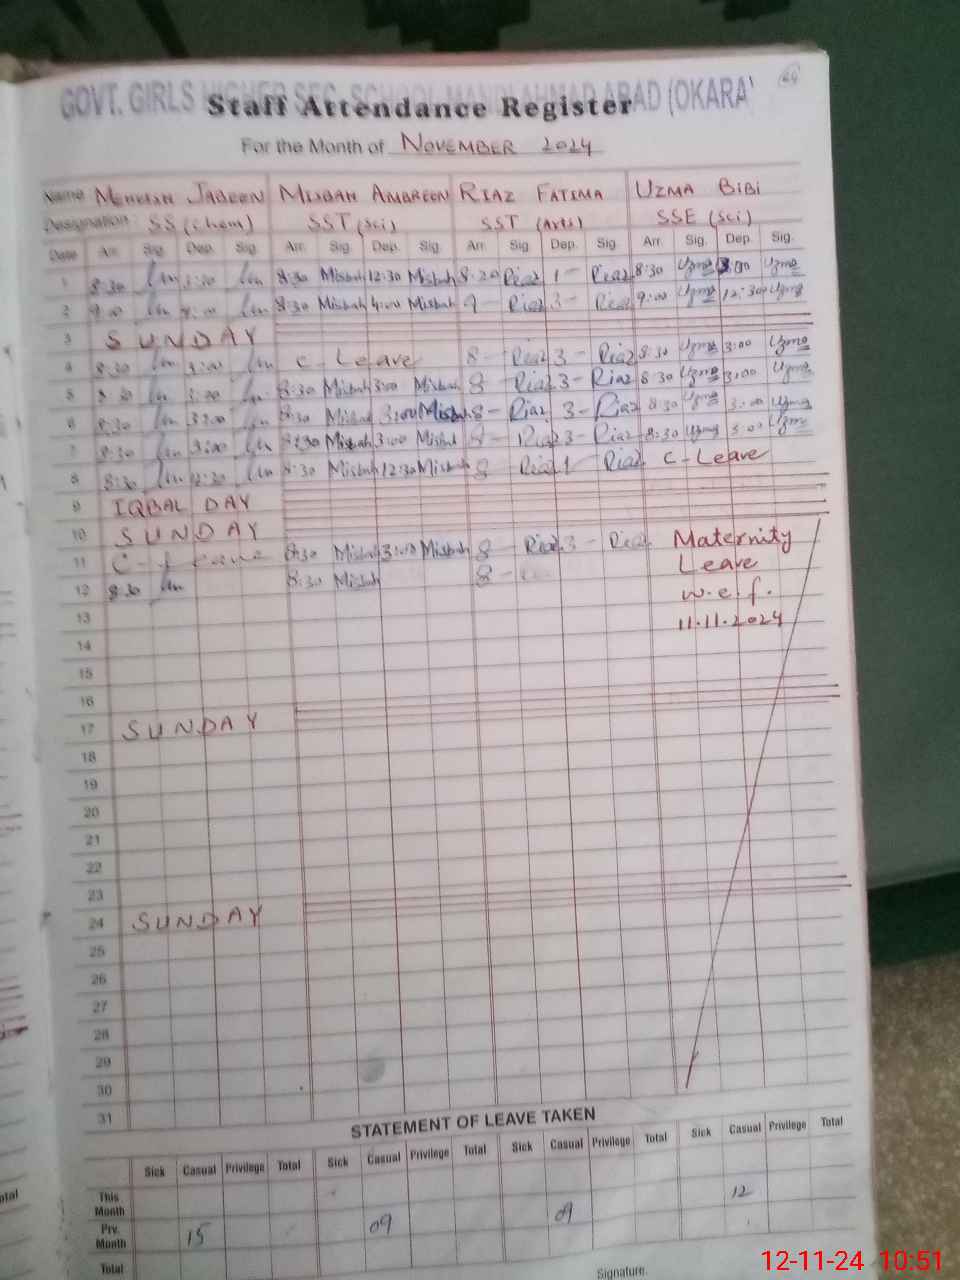 GOVT. GIRLS HIGHER SEC. SCHOOL MANDI AHMAD ABAD (OKARA)
Staff Attendance Register
For the Month of NOVEMBER 2024
Name MEHWISH JABEEN MISBAH AMBREEN RIAZ FATIMA UZMA BIBI
Designation SS (Chem) SST (Sci) SST (Arts) SSE (Sci)
Date Arr. Sig. Dep. Sig. Arr. Sig. Dep. Sig. Arr. Sig. Dep. Sig. Arr. Sig. Dep. Sig.
1 8:30 8:30 Misbah 12:30 Misbah 8:20 Riaz 1- Riaz 8:30 Uzma Uzma
2 9:00 4:00 8:30 Misbah 4:00 Misbah 9- Riaz 3- Riaz 9:00 Uzma 12:30 Uzma
3 SUNDAY
4 8:30 3:00 C- Leave 8- Riaz 3- Riaz 8:30 Uzma 3:00 Uzma
5 8:30 3:00 8:30 Misbah 3:00 Misbah 8- Riaz 3- Riaz 8:30 Uzma 3:00 Uzma
6 8:30 3:00 8:30 Misbah 3:00 Misbah 8- Riaz 3- Riaz 8:30 Uzma 3:00 Uzma
7 8:30 3:00 8:30 Misbah 3:00 Misbah 8- Riaz 3- Riaz 8:30 Uzma 3:00 Uzma
8 8:30 12:30 8:30 Misbah 12:30 Misbah 8- Riaz 1- Riaz C-Leave
9 IQBAL DAY
10 SUNDAY
11 C-Leave 8:30 Misbah 3:00 Misbah 8- Riaz 3- Riaz Maternity
Leave
12 8:30 8:30 Misbah 8-
w.e.f.
13 11.11.2024
14
15
16
17 SUNDAY
18
19
20
21
22
23
24 SUNDAY
25
26
27
28
29
30
31
STATEMENT OF LEAVE TAKEN
Sick Casual Privilege Total Sick Casual Privilege Total Sick Casual Privilege Total Sick Casual Privilege Total
This Month 12
Prv. Month 15 09 09
Total
Signature.
12-11-24 10:51